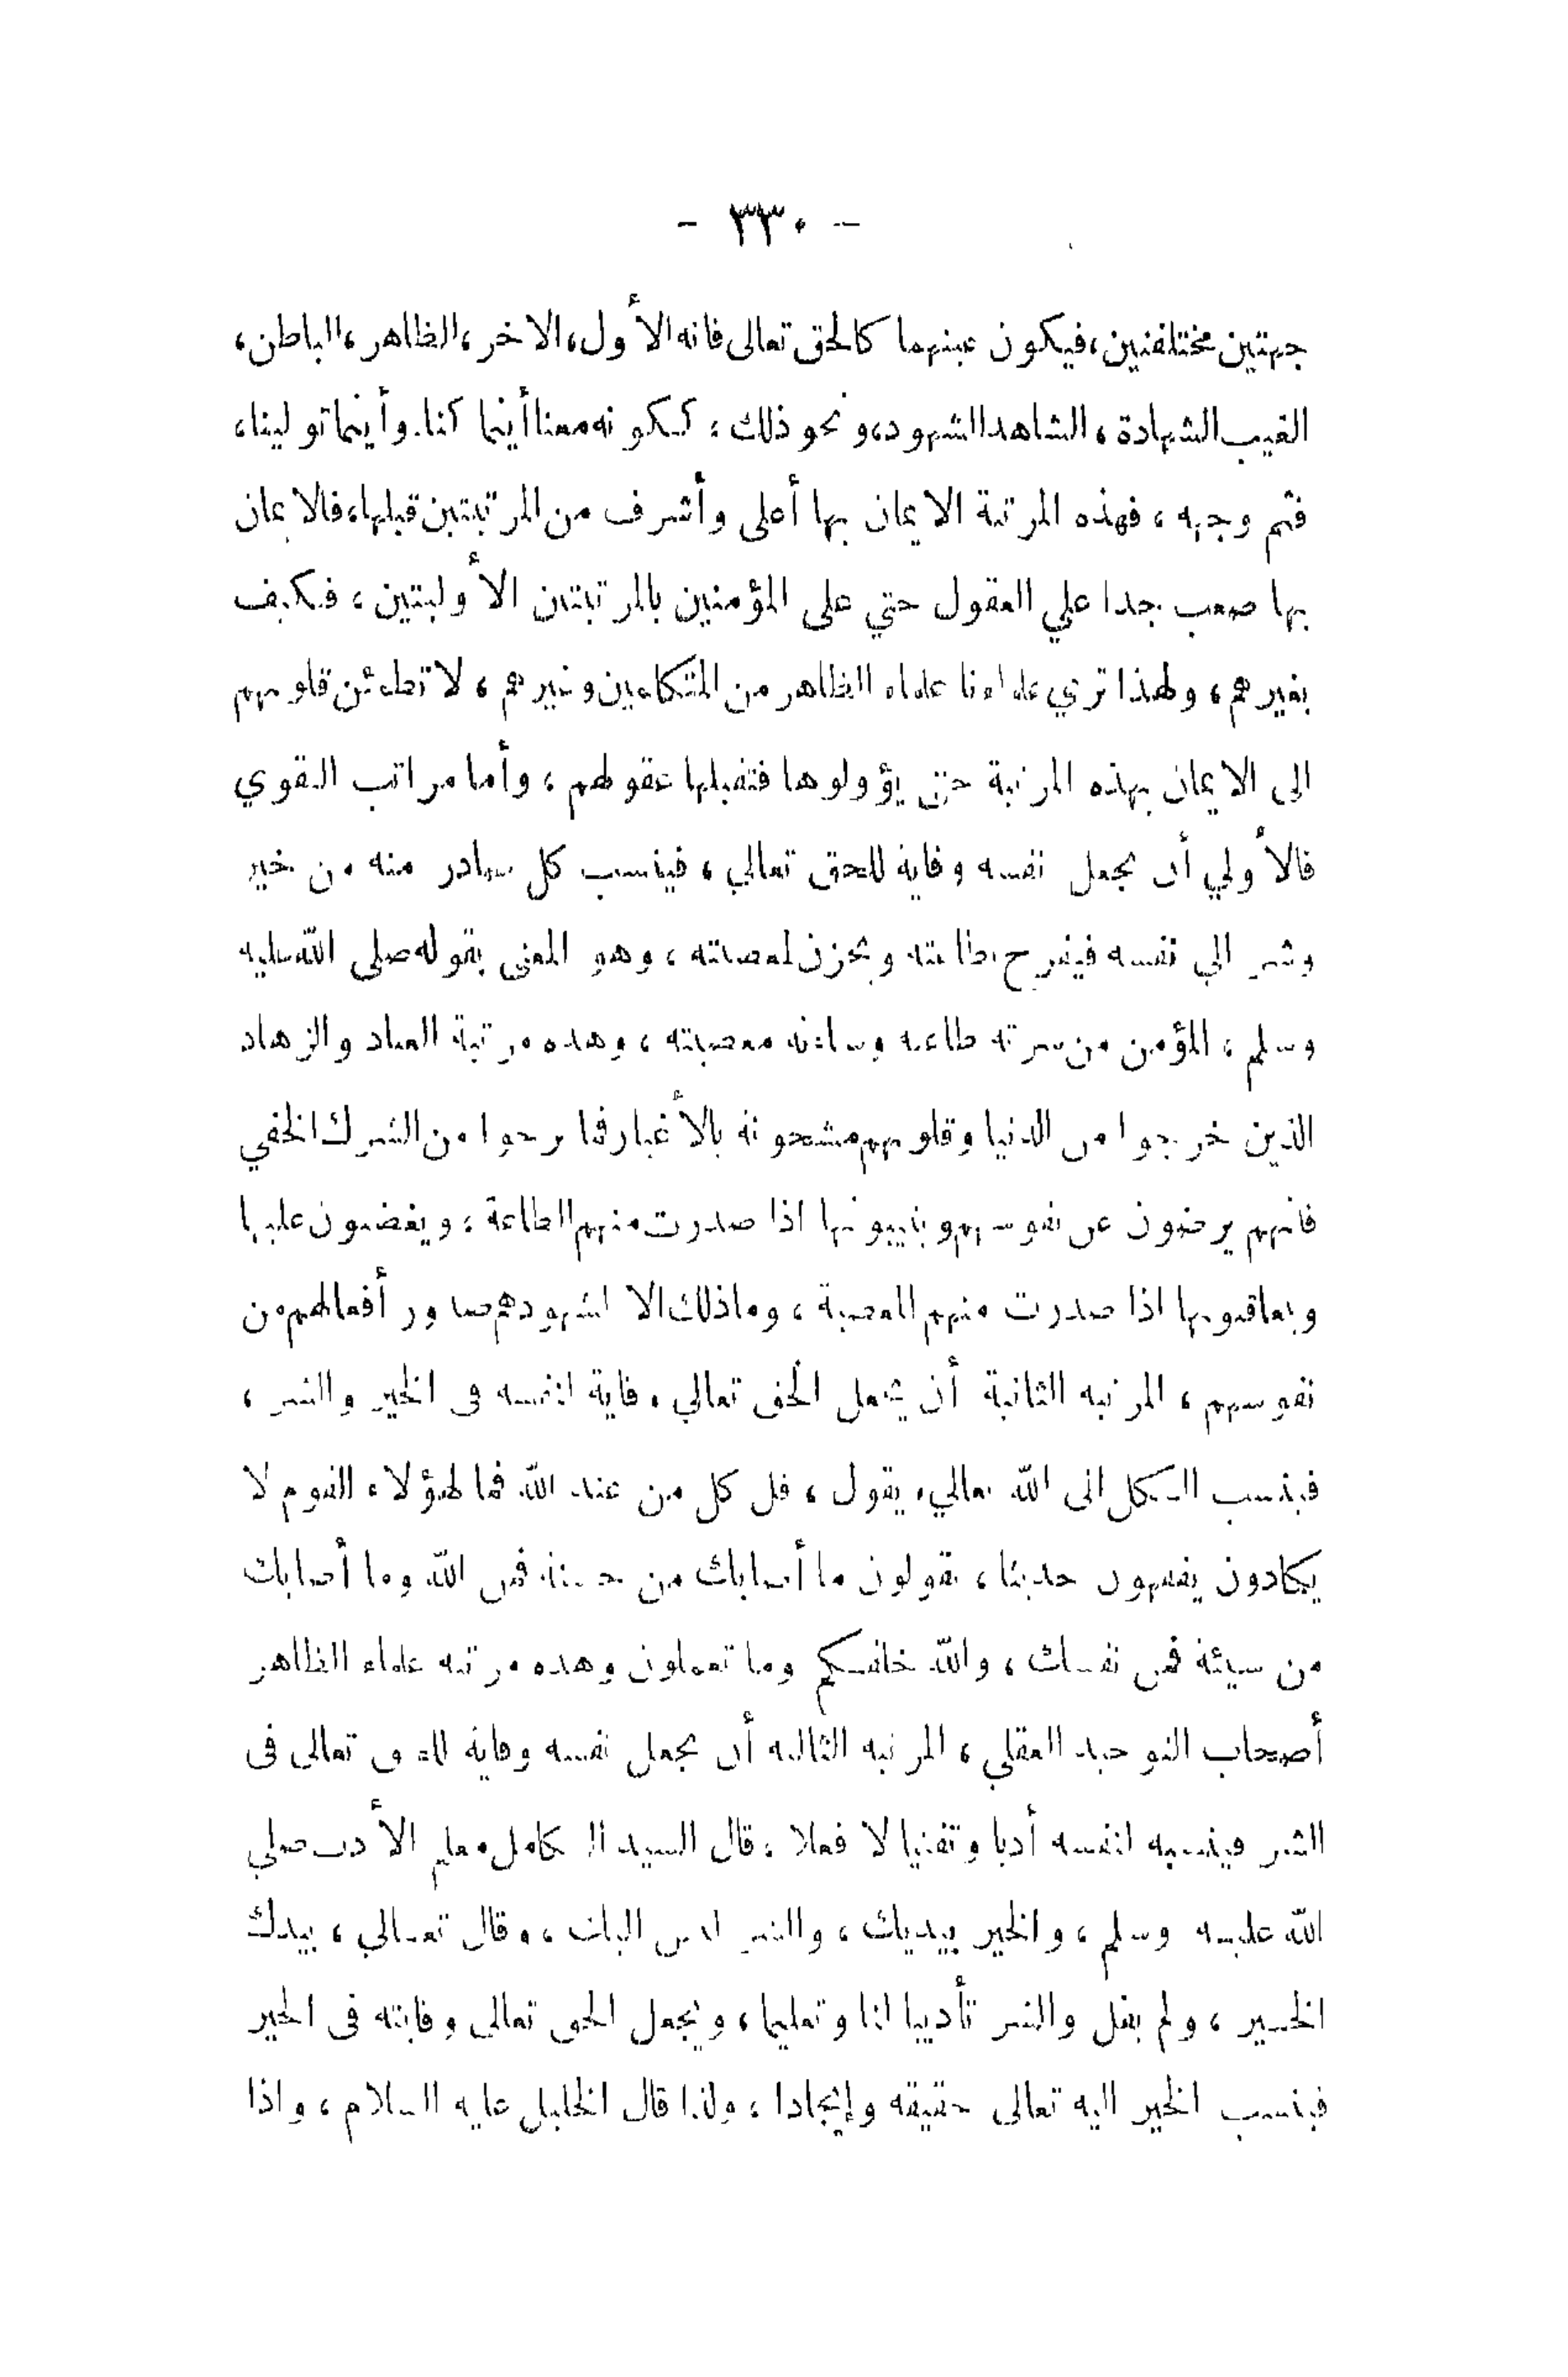 - ٣٣٠ -
جهتين مختلفتين، فيكون عينهما كالحق تعالى فانه الأول، الاخر، الظاهر، الباطن،
الغيب الشهادة، الشاهد المشهود، ونحو ذلك، ككونه معنا أينما كنا. وأينما تولينا،
فثم وجهه، فهذه المرتبة الايمان بها أعلى وأشرف من المرتبتين قبلها، فالايمان
بها صعب جدا علي العقول حتي على المؤمنين بالمرتبتين الأوليتين، فكيف
بغيرهم، ولهذا تري علماءنا علماء الظاهر من المتكلمين وغيرهم، لا تطمئن قلوبهم
الى الايمان بهذه المرتبة حتى يؤولوها فتقبلها عقولهم، وأما مراتب التقوي
فالأولي أن يجعل نفسه وقاية للحق تعالي، فينسب كل صادر منه من خير
وشر الي نفسه فيفرح بطاعته ويحزن لمعصيته، وهو المعنى بقوله صلى الله عليه
وسلم، المؤمن من سرته طاعته وساءته معصيته، وهذه مرتبة العباد والزهاد
الذين خرجوا من الدنيا وقلوبهم مشحونة بالأغيار فما برحوا من الشرك الخفي
فانهم يرضون عن نفوسهم ويثيبونها اذا صدرت منهم الطاعة، ويغضبون عليها
ويعاقبونها اذا صدرت منهم المعصية، وما ذلك الا لشهودهم صدور أفعالهم من
نفوسهم، المرتبة الثانية أن يجعل الحق تعالي وقاية لنفسه فى الخير والشر،
فينسب الكل الى الله تعالي، يقول، قل كل من عند الله فما لهؤلاء القوم لا
يكادون يفقهون حديثا، يقولون ما أصابك من حسنة فمن الله وما أصابك
من سيئة فمن نفسك، والله خلقكم وما تعملون وهذه مرتبة علماء الظاهر
أصحاب التوحيد العقلي، المرتبة الثالثة أن يجعل نفسه وقاية للحق تعالى فى
الشر فينسبه لنفسه أدبا وتفنيا لا فعلا، قال السيد الكامل معلم الأدب صلي
الله عليه وسلم، والخير بيديك، والشر ليس اليك، وقال تعالي، بيدك
الخير، ولم يقل والشر تأديبا لنا وتعليما، ويجعل الحق تعالى وقايته فى الخير
فينسب الخير اليه تعالى حقيقة وإيجادا، ولذا قال الخليل عليه السلام، واذا